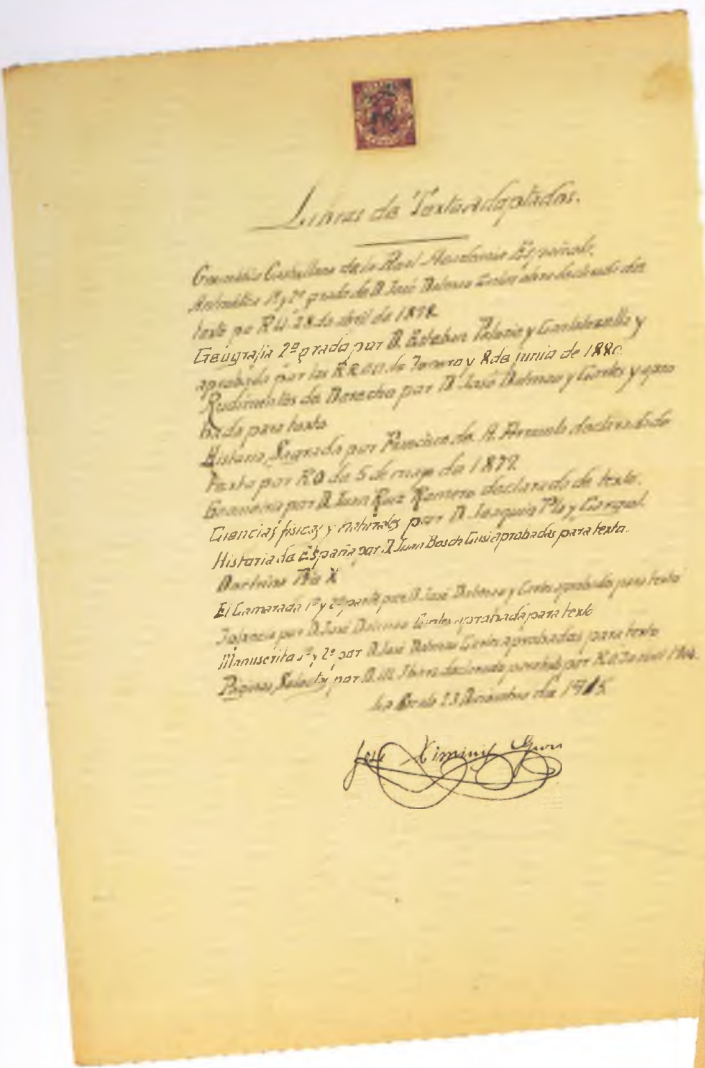 Libros de Texto adoptados.
Gramática Castellana de la Real Academia Española.
Aritmética 1º y 2º grado de D. José Dalmau Carles obra declarada de
texto por R.O. 28 de abril de 1898
Geografía 2º grado por D. Esteban Paluzie y Cantalozella y
aprobada por las RR.OO. de Enero y 8 de junio de 1880.
Rudimentos de Derecho por D. José Dalmau y Carles y apro
bada para texto
Historia Sagrada por Francisco de A. declarada de
texto por R.O. de 5 de mayo de 1879.
Geometría por D. Juan Ruiz Romero declarada de texto.
Ciencias físicas y naturales por D. Joaquín Pla y Cargol.
Historia de España por D. Juan Bosch Cusí aprobadas para texto.
Doctrina Pío X
El Camarada 1ª y 2ª parte por D. José Dalmau y Carles aprobada para texto
Infancia por D. José Dalmau Carles aprobada para texto
Manuscrito 1º y 2º por D. José Dalmau Carles aprobadas para texto
Páginas Selectas por D. M. declarada para texto por R.O. abril 1904.
23 Diciembre de 1915
José Ximiny